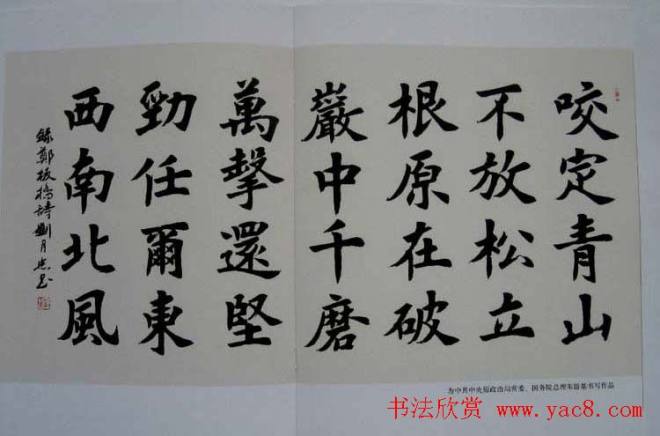 咬定青山
不放松立
根原在破
巖中千磨
萬擊還堅
勁任爾東
西南北風
錄鄭板橋詩劉月
为中共中央原政治局常委、国务院总理朱镕基书写作品
书法欣赏 www.yac8.com